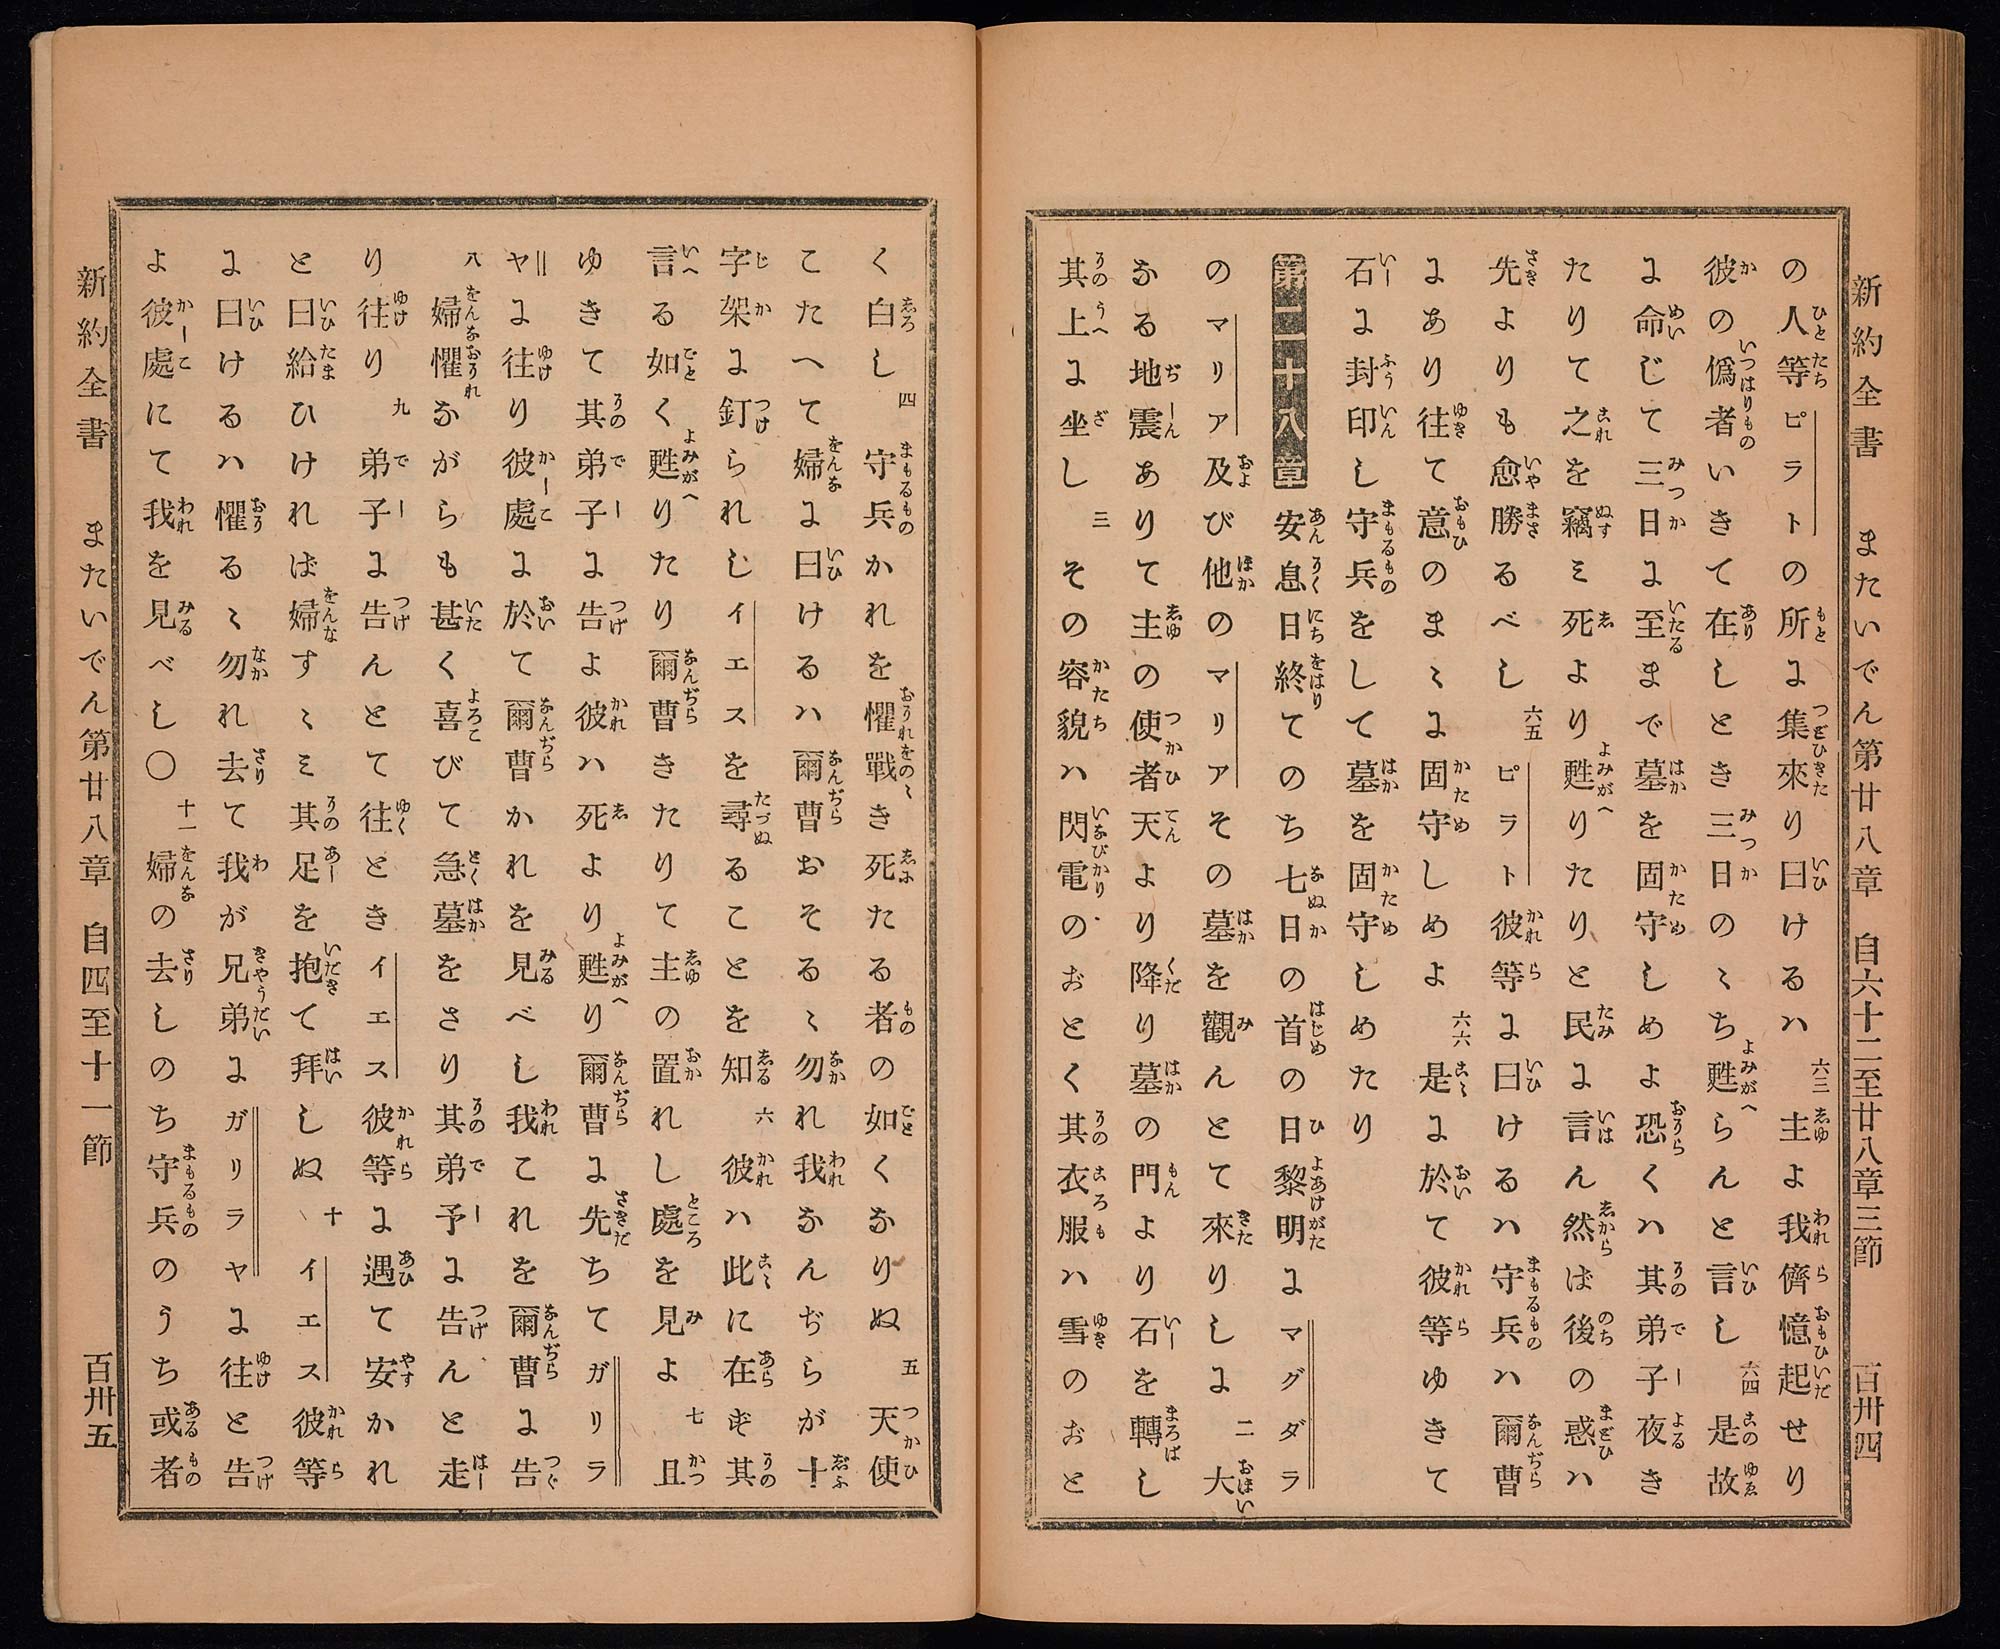 新約全書　またいでん第廿八章　自六十二至廿八章三節　百卅四
の人等ピラトの所に集來り曰けるハ 六三 主よ我儕憶起せり
彼の僞者いきて在しとき三日のゝち甦らんと言し 六四 是故
に命じて三日に至まで墓を固守しめよ恐くハ其弟子夜き
たりて之を竊ミ死より甦りたりと民に言ん然ば後の惑ハ
先よりも愈勝るべし 六五 ピラト彼等に曰けるハ守兵ハ爾曹
にあり往て意のまゝに固守しめよ 六六 是に於て彼等ゆきて
石に封印し守兵をして墓を固守しめたり
第二十八章 安息日終てのち七日の首の日黎明にマグダラ
のマリア及び他のマリアその墓を觀んとて來りしに 二 大
なる地震ありて主の使者天より降り墓の門より石を轉し
其上に坐し 三 その容貌ハ閃電のおとく其衣服ハ雪のおと
く白し 四 守兵かれを懼戰き死たる者の如くなりぬ 五 天使
こたへて婦に曰けるハ爾曹おそるゝ勿れ我なんぢらが十
字架に釘られしイエスを尋ることを知 六 彼ハ此に在ず其
言る如く甦りたり爾曹きたりて主の置れし處を見よ 七 且
ゆきて其弟子に告よ彼ハ死より甦り爾曹に先ちてガリラ
ヤに往り彼處に於て爾曹かれを見べし我これを爾曹に告
八 婦懼ながらも甚く喜びて急墓をさり其弟子に告んと走
り往り 九 弟子に告んとて往ときイエス彼等に遇て安かれ
と曰給ひければ婦すゝミ其足を抱て拜しぬ 十 イエス彼等
に曰けるハ懼るゝ勿れ去て我が兄弟にガリラヤに往と告
よ彼處にて我を見べし〇 十一 婦の去しのち守兵のうち或者
新約全書　またいでん第廿八章　自四至十一節　百卅五